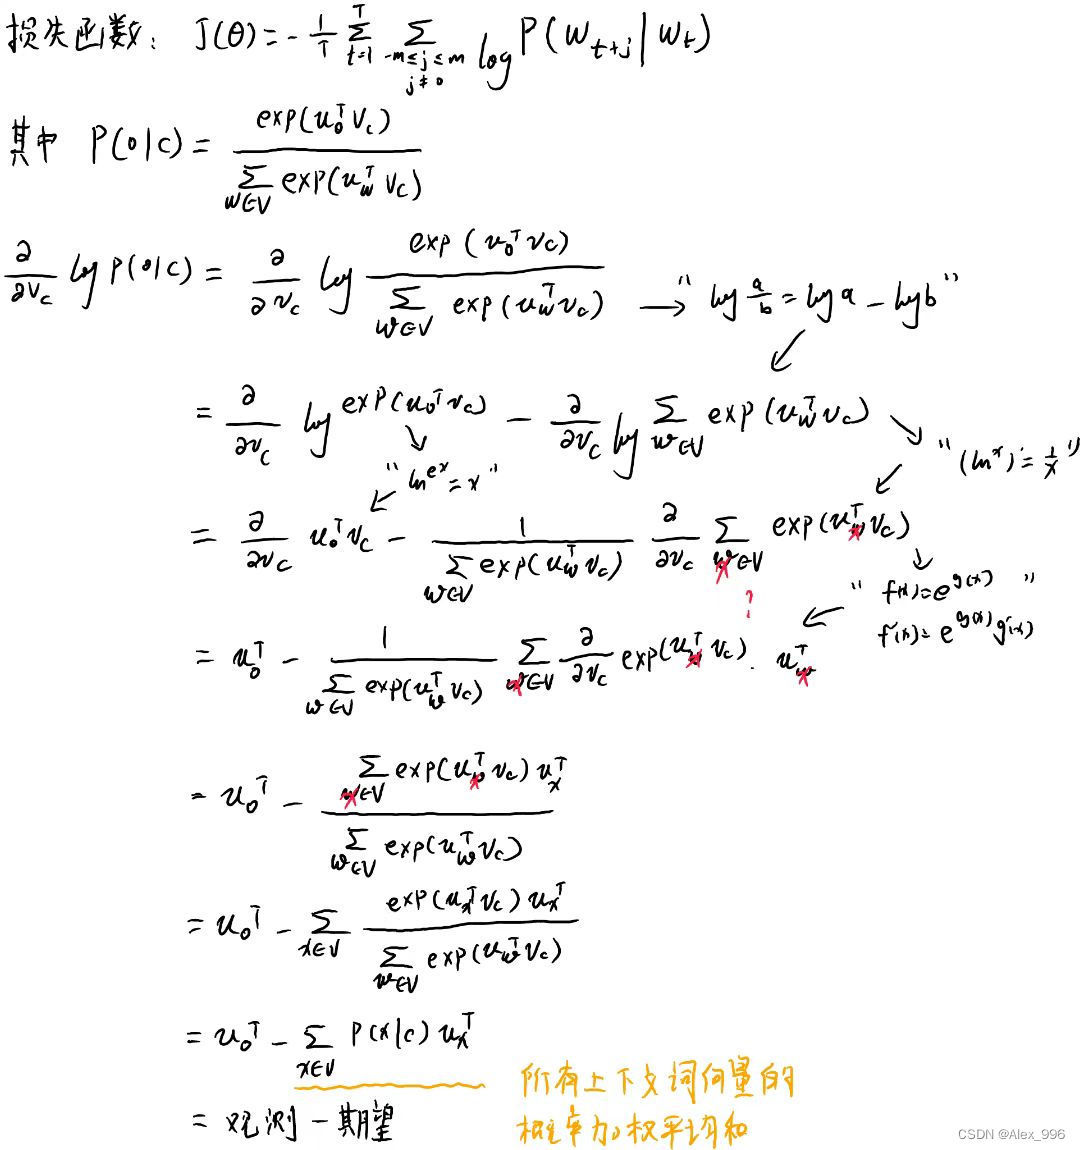 损失函数: J(θ) = - 1/T Σ_{t=1}^{T} Σ_{-m≤j≤m, j≠0} log P(W_{t+j} | W_t)
其中 P(o|c) = exp(u_o^T v_c) / Σ_{w∈V} exp(u_w^T v_c)
∂/∂v_c log p(o|c) = ∂/∂v_c log exp(u_o^T v_c) / Σ_{w∈V} exp(u_w^T v_c) → “ log a/b = log a - log b ”
= ∂/∂v_c log exp(u_o^T v_c) - ∂/∂v_c log Σ_{w∈V} exp(u_w^T v_c)
“ ln^{e^x} = x ” “ (ln^x)' = 1/x ”
= ∂/∂v_c u_o^T v_c - 1 / Σ_{w∈V} exp(u_w^T v_c) ∂/∂v_c Σ_{x∈V} exp(u_x^T v_c)
“ f(x) = e^{g(x)} ”
?
f'(x) = e^{g(x)} g'(x)
= u_o^T - 1 / Σ_{w∈V} exp(u_w^T v_c) Σ_{x∈V} ∂/∂v_c exp(u_x^T v_c) · u_x^T
= u_o^T - Σ_{x∈V} exp(u_x^T v_c) u_x^T / Σ_{w∈V} exp(u_w^T v_c)
= u_o^T - Σ_{x∈V} exp(u_x^T v_c) u_x^T / Σ_{w∈V} exp(u_w^T v_c)
= u_o^T - Σ_{x∈V} P(x|c) u_x^T
所有上下文词向量的
= 观测 - 期望
概率加权平均和
CSDN @Alex_996